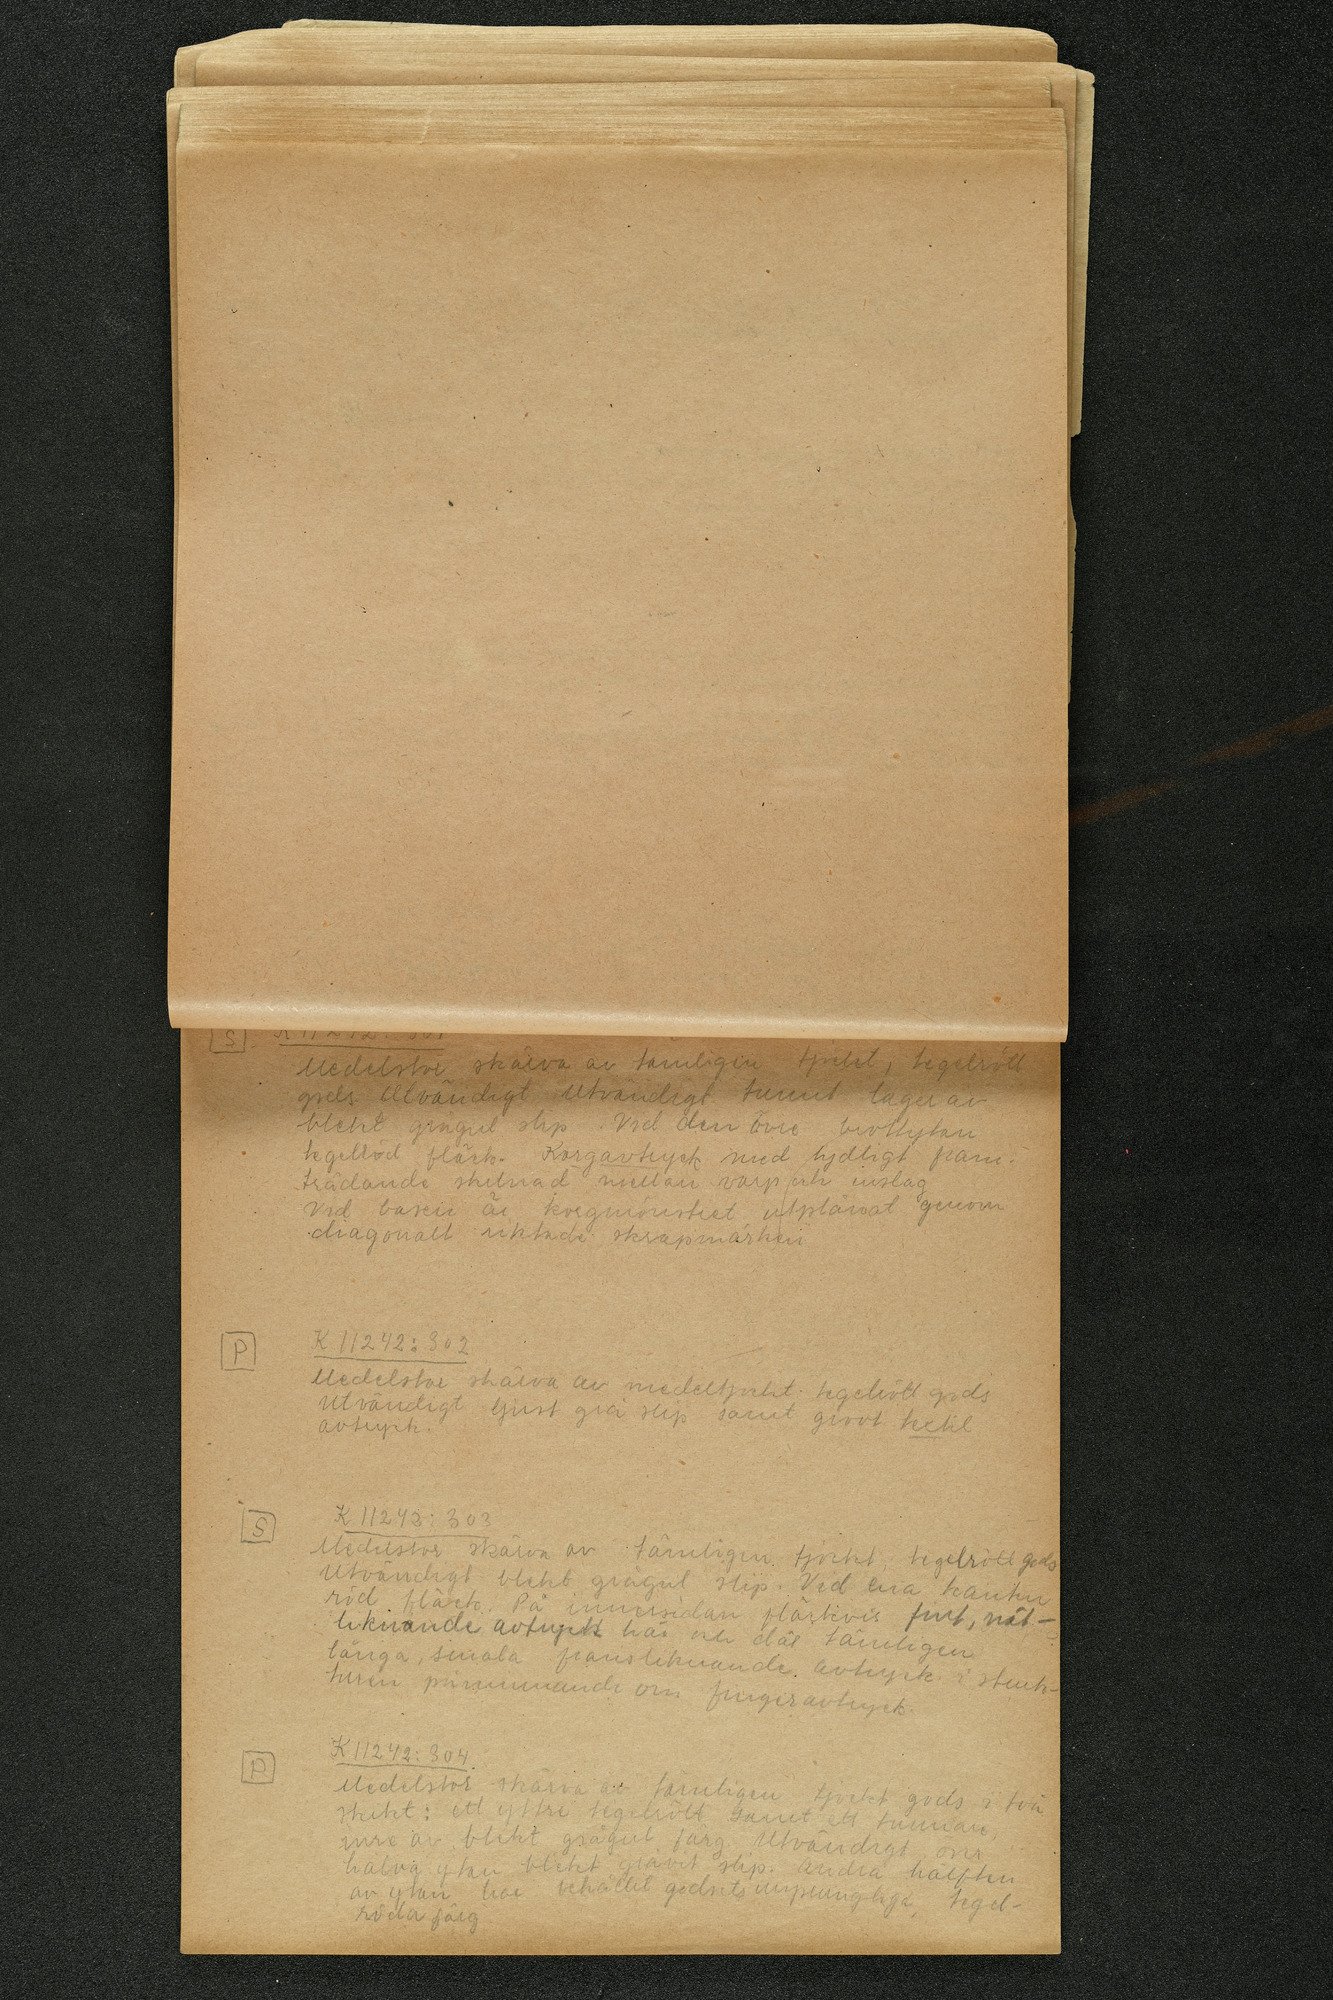 S K 11242: 301
Medelstor skärva av tämligen tjockt, tegelrött
gods Utvändigt Utvändigt tunnt lager av
blekt grågul slip. Vid den övre brottytan
tegelröd fläck. Korgavtryck med tydligt fram-
trädande skilnad mellan varp och inslag
Vid basen är korgmönstret utplånat genom
diagonalt riktade skrapmärken
P K 11242: 302
Medelstor skärva av medeltjockt tegelrött gods
Utvändigt ljust grå slip samt grovt textil
avtryck.
S K 11242: 303
Medelstor skärva av tämligen tjockt, tegelrött gods
Utvändigt blekt grågul slip. Vid ena kanten
röd fläck. På innersidan fläckvis fint, nät-
liknande avtryck här och där tämligen
långa, smala fransliknande avtryck i struk-
turen påminnande om fingeravtryck.
P K 11242: 304
Medelstor skärva av tämligen tjockt gods i två
skikt: ett yttre tegelrött samt ett tunnare,
inre av blekt grågul färg. Utvändigt om
halva ytan blekt gråvit slip. Andra hälften
av ytan har behållit godsets ursprungliga, tegel-
röda färg